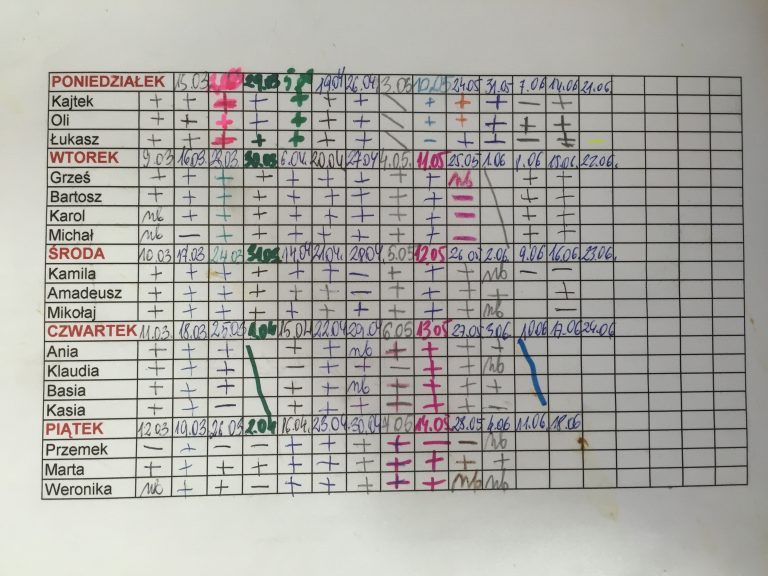 PONIEDZIAŁEK 15.03 29.03 19.04 26.04 3.05 10.05 24.05 31.05 7.06 14.06 21.06.
Kajtek + + + + + + + \ + + + — +
Oli + + + + + + + \ + + + + +
Łukasz + + + + + + + \ — + + — +
WTOREK 9.03 16.03 23.03 30.03 6.04 20.04 27.04 4.05. 11.05 25.05 1.06 1.06 15.06. 22.06.
Grześ + + + + + + + + + nb + +
Bartosz + + + + + + + + + — + +
Karol nb + + + + + + + + — + +
Michał nb — + + + + + + + — + +
ŚRODA 10.03 17.03 24.03 31.03 14.04 21.04. 28.04 5.05 12.05 26.05 2.06 9.06 16.06 23.06.
Kamila + + + + + + — + + + nb — —
Amadeusz + + + + + + — + + + + +
Mikołaj + + + + + + + + + + nb +
CZWARTEK 11.03. 18.03 25.03 1.04 15.04 22.04 29.04 6.05 13.05 27.05 3.06 10.06 17.06 24.06
Ania + + + + + nb + + + +
Klaudia + + + — + + — + + nb
Basia + + + + + nb + + + +
Kasia + + — + + + — + + +
PIĄTEK 12.03 19.03 26.03 2.04 16.04. 23.04 30.04 14.05 28.05 4.06 11.06 18.06
Przemek — + — — + + + + — — nb
Marta + + + + + + + + + + +
Weronika nb + + — + + + + + nb nb